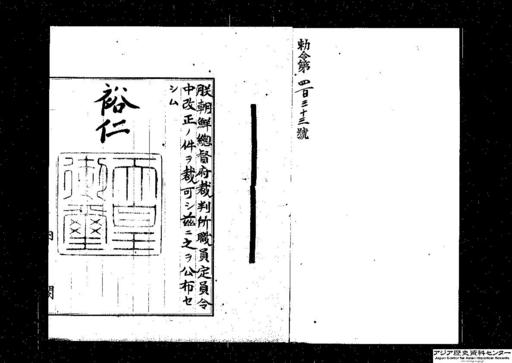 勅令第四百三十三號
朕朝鮮總督府裁判所職員定員令
中改正ノ件ヲ裁可シ茲ニ之ヲ公布セ
シム
裕仁
天皇
御璽
内
閣
アジア歴史資料センター
Japan Center for Asian Historical Records